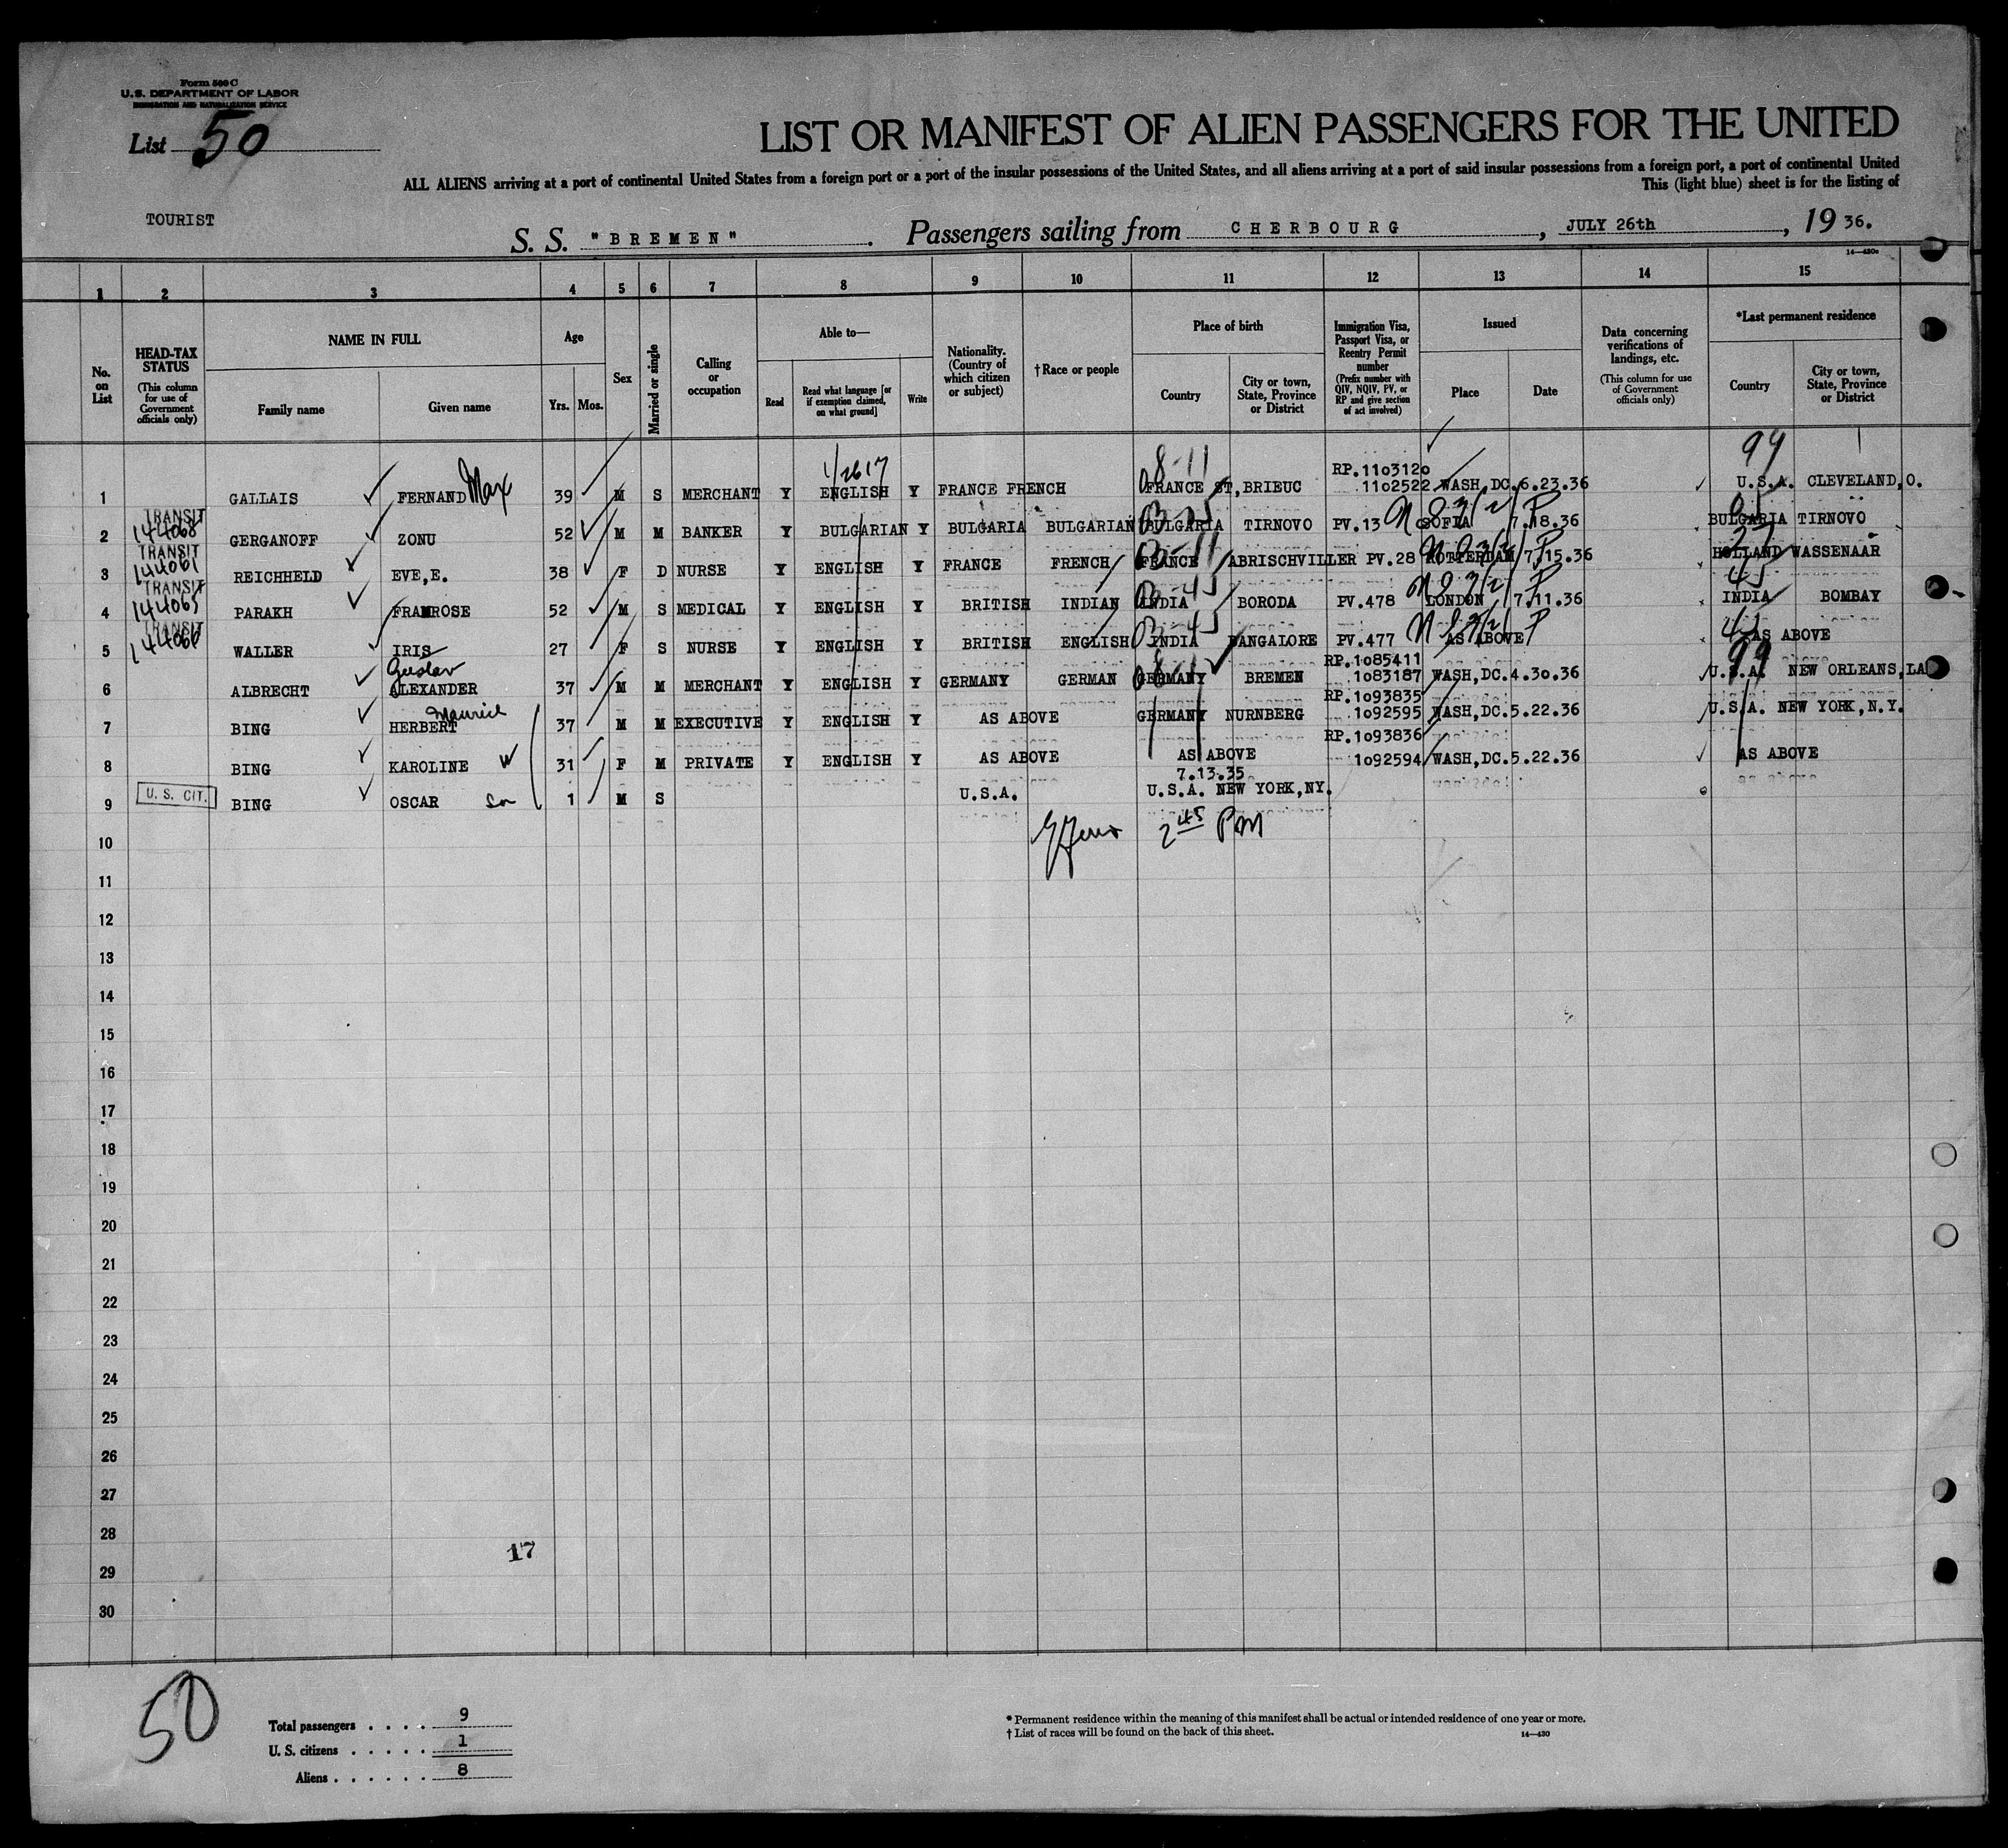 Form 500 C
U.S. DEPARTMENT OF LABOR
IMMIGRATION AND NATURALIZATION SERVICE
List 50
LIST OR MANIFEST OF ALIEN PASSENGERS FOR THE UNITED
ALL ALIENS arriving at a port of continental United States from a foreign port or a port of the insular possessions of the United States, and all aliens arriving at a port of said insular possessions from a foreign port, a port of continental United
This (light blue) sheet is for the listing of
TOURIST
S. S. "BREMEN". Passengers sailing from CHERBOURG, JULY 26th, 19 36.
14—430c
1 2 3 4 5 6 7 8 9 10 11 12 13 14 15
No. on List
HEAD-TAX STATUS
(This column for use of Government officials only)
NAME IN FULL
Family name Given name
Age
Yrs. Mos.
Sex
Married or single
Calling or occupation
Able to—
Read Read what language [or if exemption claimed, on what ground] Write
Nationality. (Country of which citizen or subject)
† Race or people
Place of birth
Country City or town, State, Province or District
Immigration Visa, Passport Visa, or Reentry Permit number
(Prefix number with QIV, NQIV, PV, or RP and give section of act involved)
Issued
Place Date
Data concerning verifications of landings, etc.
(This column for use of Government officials only)
*Last permanent residence
Country City or town, State, Province or District
1/2617 8-11 RP.1103120 99
1 GALLAIS FERNAND Max 39 M S MERCHANT Y ENGLISH Y FRANCE FRENCH FRANCE ST,BRIEUC 1102522 WASH,DC.6.23.36 U.S.A. CLEVELAND,O.
TRANSIT
144068
2 GERGANOFF ZONU 52 M M BANKER Y BULGARIAN Y BULGARIA BULGARIAN BULGARIA TIRNOVO PV.13 SOFIA 7.18.36 BULGARIA TIRNOVO
TRANSIT
144061
3 REICHHELD EVE,E. 38 F D NURSE Y ENGLISH Y FRANCE FRENCH FRANCE ABRISCHVILLER PV.28 ROTTERDAM 7.15.36 HOLLAND WASSENAAR
TRANSIT
144065
4 PARAKH FRAMROSE 52 M S MEDICAL Y ENGLISH Y BRITISH INDIAN INDIA BORODA PV.478 LONDON 7.11.36 INDIA BOMBAY
TRANSIT
144066
5 WALLER IRIS 27 F S NURSE Y ENGLISH Y BRITISH ENGLISH INDIA BANGALORE PV.477 AS ABOVE AS ABOVE
Gustav RP.1085411 99
6 ALBRECHT ALEXANDER 37 M M MERCHANT Y ENGLISH Y GERMANY GERMAN GERMANY BREMEN 1083187 WASH,DC.4.30.36 U.S.A. NEW ORLEANS,LA
Maurice RP.1093835
7 BING HERBERT 37 M M EXECUTIVE Y ENGLISH Y AS ABOVE GERMANY NURNBERG 1092595 WASH,DC.5.22.36 U.S.A. NEW YORK,N.Y.
RP.1093836
8 BING KAROLINE W 31 F M PRIVATE Y ENGLISH Y AS ABOVE AS ABOVE 1092594 WASH,DC.5.22.36 AS ABOVE
7.13.35
9 U. S. CIT. BING OSCAR Son 1 M S U.S.A. U.S.A. NEW YORK,NY.
10 2 45 PM
11
12
13
14
15
16
17
18
19
20
21
22
23
24
25
26
27
28
17
29
30
50
Total passengers . . . . 9
U. S. citizens . . . . . 1
Aliens . . . . . . 8
* Permanent residence within the meaning of this manifest shall be actual or intended residence of one year or more.
† List of races will be found on the back of this sheet.
14—430